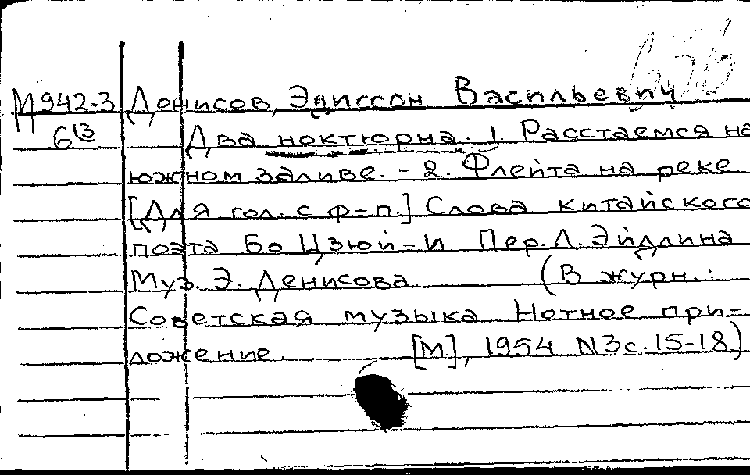 М942-3 Денисов, Эдиссон Васильевич
6/13 Два ноктюрна. 1. Расстаемся на
южном заливе. - 2. Флейта на реке
[Для гол. с ф-п.] Слова китайского
поэта Бо Цзюй-И Пер. Л. Эйдлина
Муз. Э. Денисова (В журн.:
Советская музыка Нотное при-
ложение. [М], 1954 N3 с. 15-18)